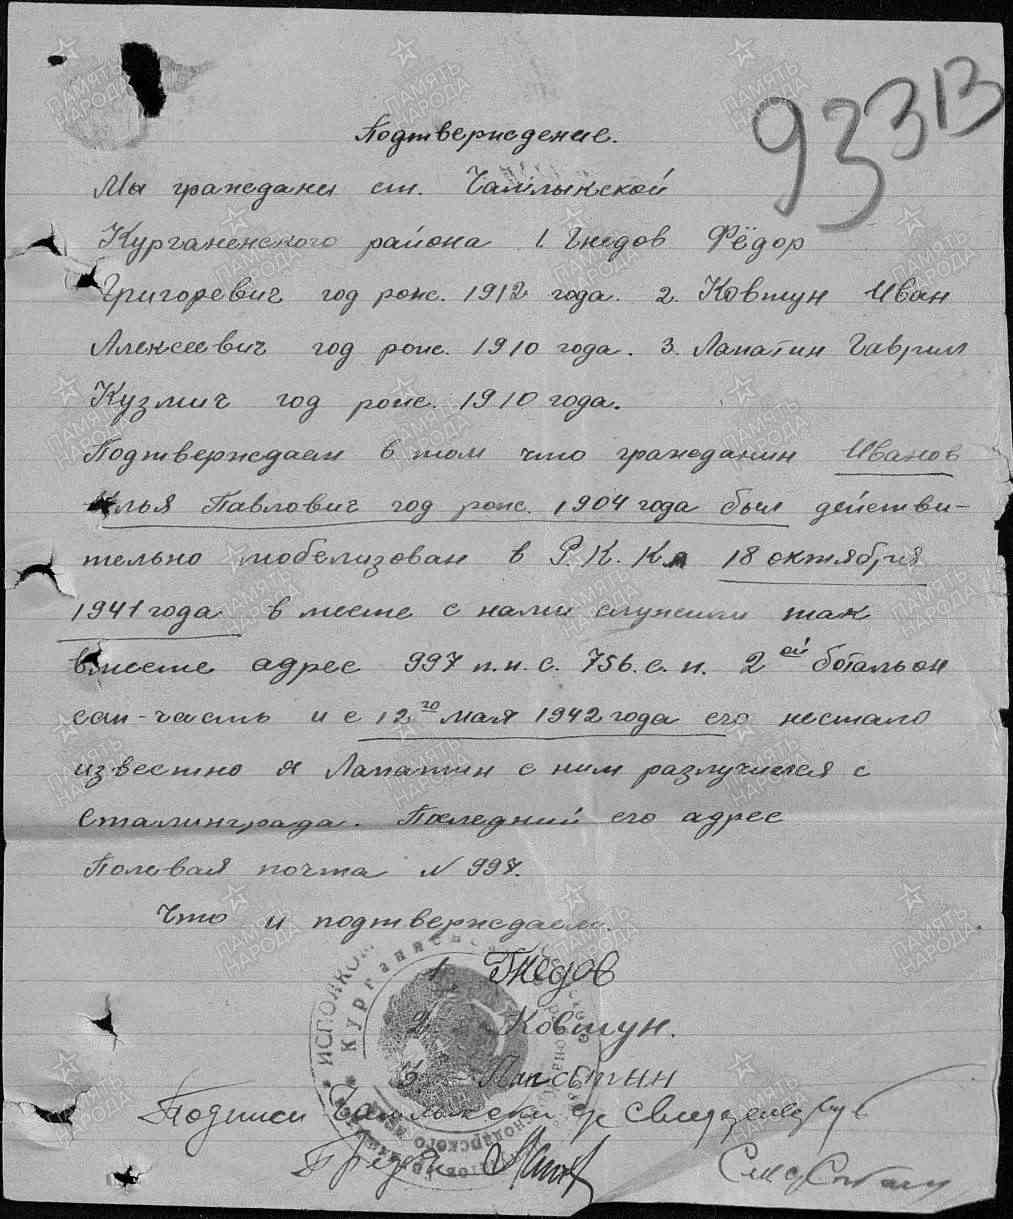 933В
Подтверждение.
Мы граждани ст. Чамлыкской
Курганенского района 1 Гнедов Фёдор
Григоревич год рож. 1912 года. 2. Ковтун Иван
Алексеевич год рож. 1910 года. 3. Лапатин Гаврил
Кузмич год рож. 1910 года.
Подтверждаем в том что гражданин Иванов
Илья Павлович год рож. 1904 года был действи-
тельно мобелизован в Р.К.КА 18 октября
1941 года в месте с нами служили так
вместе адрес 997 п.п.с. 756.с.п. 2ойботальон
сан-часть и с 12го мая 1942 года его нестало
известно я Лапатин с ним разлучился с
Сталинграда. Последний его адрес
Полевая почта N 997.
Что и подтверждаем.
1 Гнедов
2 Ковтун.
3 Лапатин
Подписи Чамлыкский с/с свидетельствует
Предс
ИСПОЛКОМ
ПАМЯТЬ НАРОДА